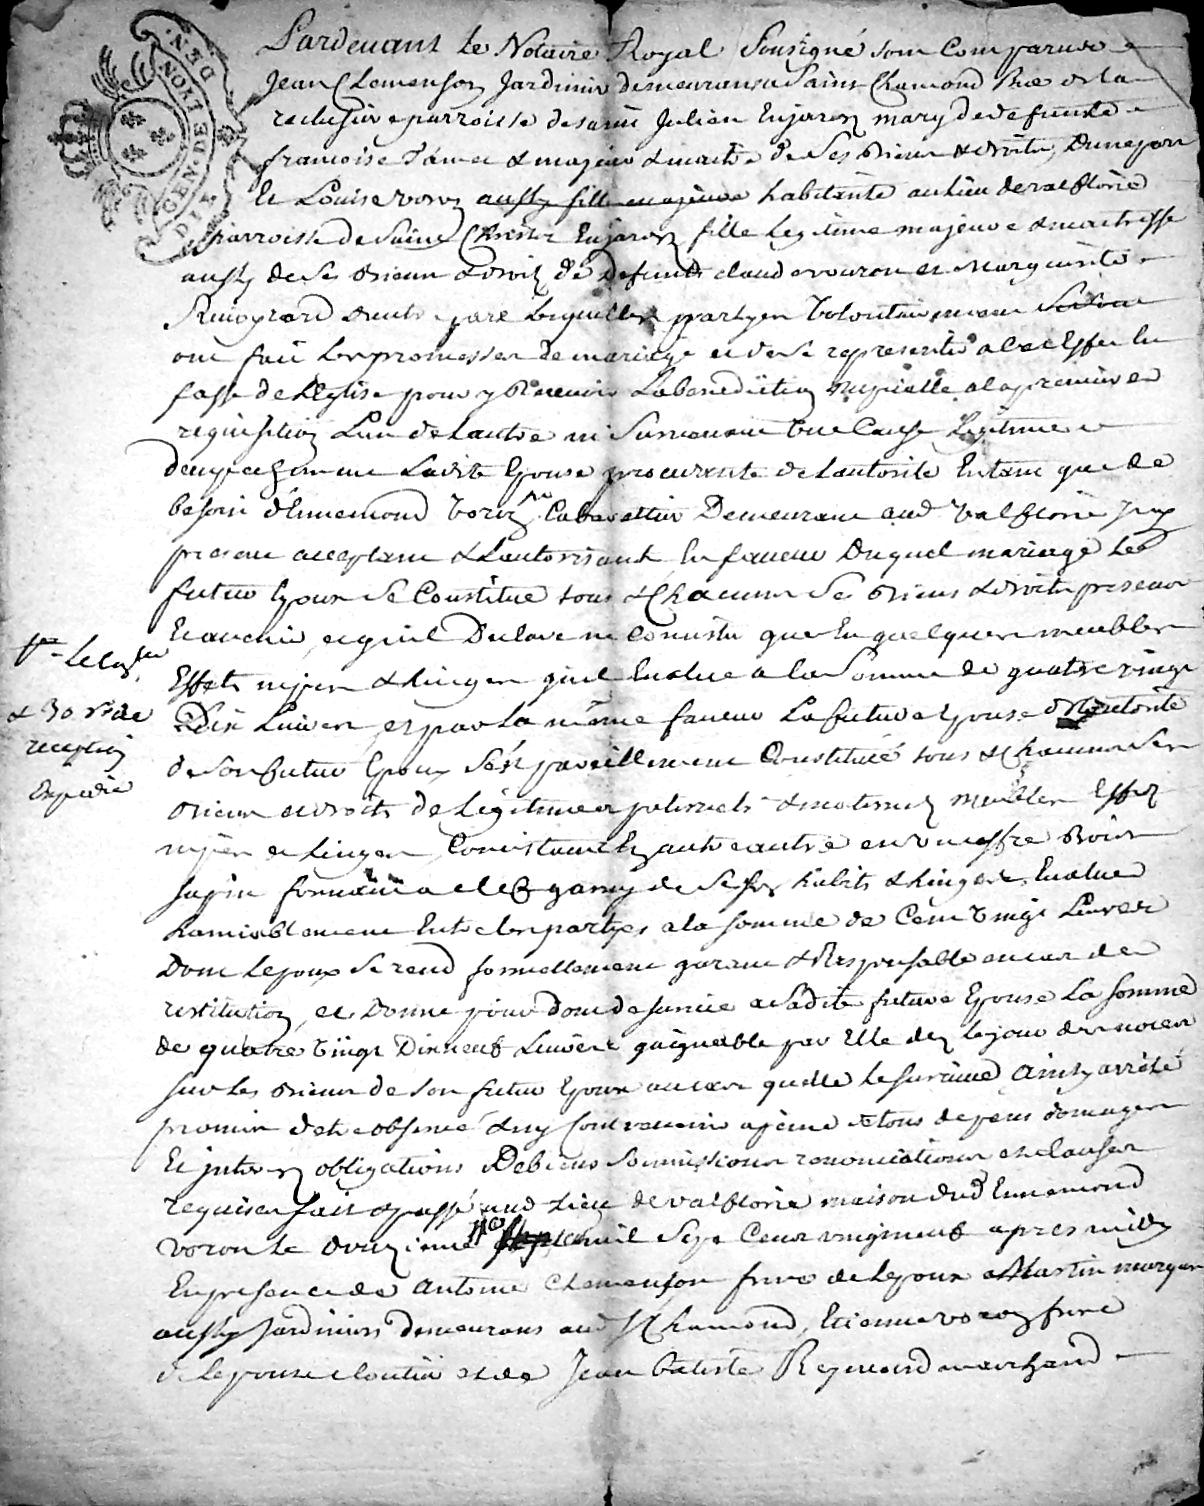 Pardevant le Notaire Royal Sousigné sont Comparus
Jean Clemenson Jardinier demeurant a Saint Chamond Rue de la
reclusiere parroisse de saint Julien En jarez mary de defeunte
francoise & majeur & maitre de Ses Biens & droits, Dune part
Et Louise voron aussy fille majeure habitante au lieu de valflorie
parroisse de Saint Christo En jarez fille legitime majeure & maitresse
aussy de Ses Biens & droits de defunts claude vouron et Marguerite
dautre part Lesquelles partyes Volontairement
ont fait les promesses de mariage et de se representer a cet Effet En
fasse de LEglise pour y Recevoir La benediction nuptialle a la premiere
requisition Lun de Lautre ni Survenant Une Cause Legitime
dempechement Ladite Epouse procurante de Lautorité En tant que de
besoin d'Ennemond Voron Cabarettier Demeurant aud Valflorie Icy
present acceptant & Lautorisant En faveur Duquel mariage Le
futur Epoux Se Constitue tous & Chacuns Ses Biens & droits presents
Et avenir, et quil Declare ne Consister que En quelques meubles
Effets nipes & Linges quil Evalue a la Somme de quatre vingt
Dix Livres, et par La même faveur La future Epouse de Lautorité
de Son futur Epoux S'est pareillement Constitué tous & Chacuns Ses
Biens et droits de Legitimes paternels & maternels meubles Effets
nipes et Linges, Consistants Entre autre en un coffre Bois
sapin fermant a clef garny de Ses habits & Linges, Evalue
hamiablement Entre les partyes a la somme de Cent vingt Livres
Dont Lepoux Se rend formellement garant & Responsable en cas de
restitution, et Donne pour don de survie a Ladite future Epouse La somme
de quatre vingt Dix neuf Livres gaignable par Elle dez Le jour des noces
sur Les Biens de Son futur Epoux au cas quelle le survive Ainsy arrêté
promis detre observé & ny Contrevenir a peine de tous depens domages
Et interets obligations De biens Soumissions renonciations et clauses
requises fait & passé aud Lieu de valflorie maison dud Ennemond
voron le douzieme mil Sept Cent vingt neuf apres midy
En presence de Antoine Clemenson frere de Lepoux & Martin
aussy Jardiniers demeurans aud St Chamond, Etienne voron frere
de Lepouse cloutier et de Jean batiste Reymond marchand
Con le
& 30 s de
reception
Expedié
GEN. DE
DIX DEN.